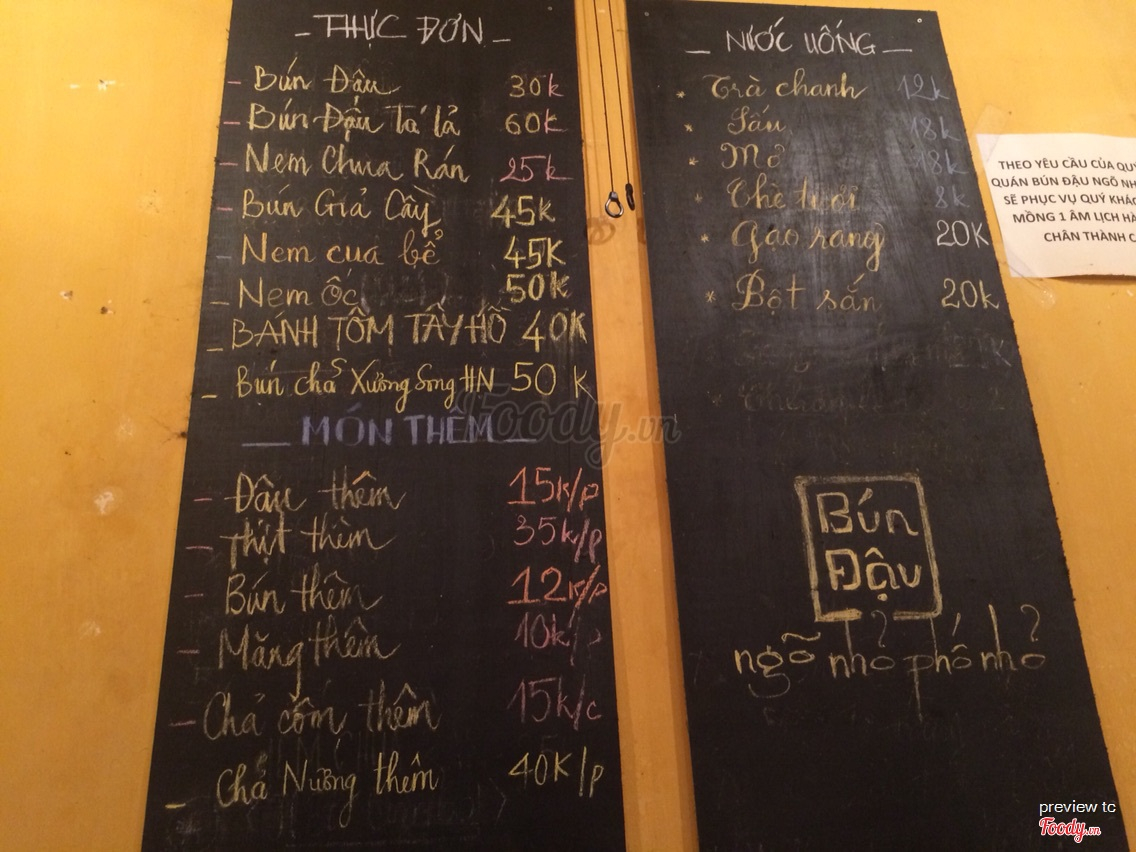 _ THỰC ĐƠN _
- Bún Đậu 30k
- Bún Đậu Tá lả 60k
- Nem Chua Rán 25k
- Bún Giả Cầy 45k
- Nem cua bể 45K
- Nem Ốc 50k
- BÁNH TÔM TÂY HỒ 40K
- Bún chả Xương Song HN 50K
_ MÓN THÊM _
- Đậu thêm 15k/p
- Thịt thêm 35k/p
- Bún thêm 12k/p
- Măng thêm 10k/p
- Chả cốm thêm 15k/c
- Chả Nướng thêm 40K/p
_ NƯỚC UỐNG _
* Trà chanh 12k
* Sấu 18k
* Mơ 18k
* Chè tươi 8k
* Gạo rang 20K
* Bột sắn 20k
Bún
Đậu
ngõ nhỏ phố nhỏ
THEO YÊU CẦU CỦA QUÝ
QUÁN BÚN ĐẬU NGÕ NH
SẼ PHỤC VỤ QUÝ KHÁC
MỒNG 1 ÂM LỊCH HÀ
CHÂN THÀNH C
Foody.vn
preview tc
Foody.vn